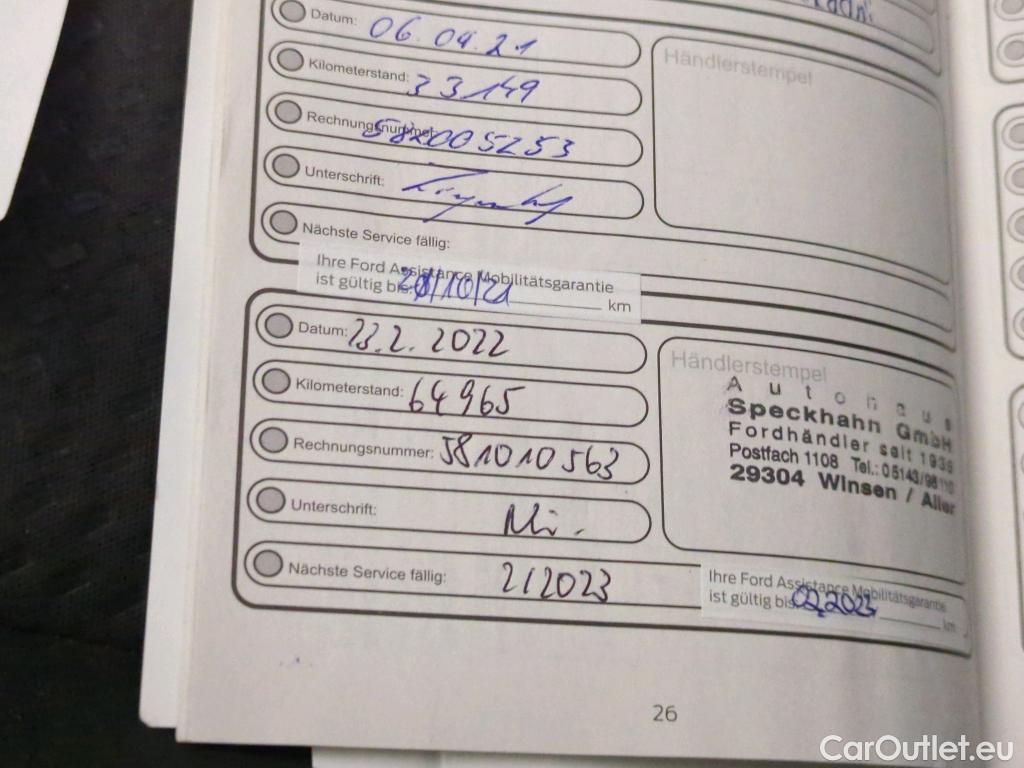 Datum: 06.04.21
Kilometerstand: 33149
Händlerstempel
Rechnungsnummer: 582005253
Unterschrift:
Nächste Service fällig:
Ihre Ford Assistance Mobilitätsgarantie
ist gültig bis /10/21 km
Datum: 23.2.2022
Kilometerstand: 64965
Rechnungsnummer: 581010563
Unterschrift:
Nächste Service fällig: 2/2023
Händlerstempel
Autohaus
Speckhahn GmbH
Fordhändler seit 1936
Postfach 1108 Tel.: 05143/98110
29304 Winsen / Aller
Ihre Ford Assistance Mobilitätsgarantie
ist gültig bis 02.2023 km
26
CarOutlet.eu